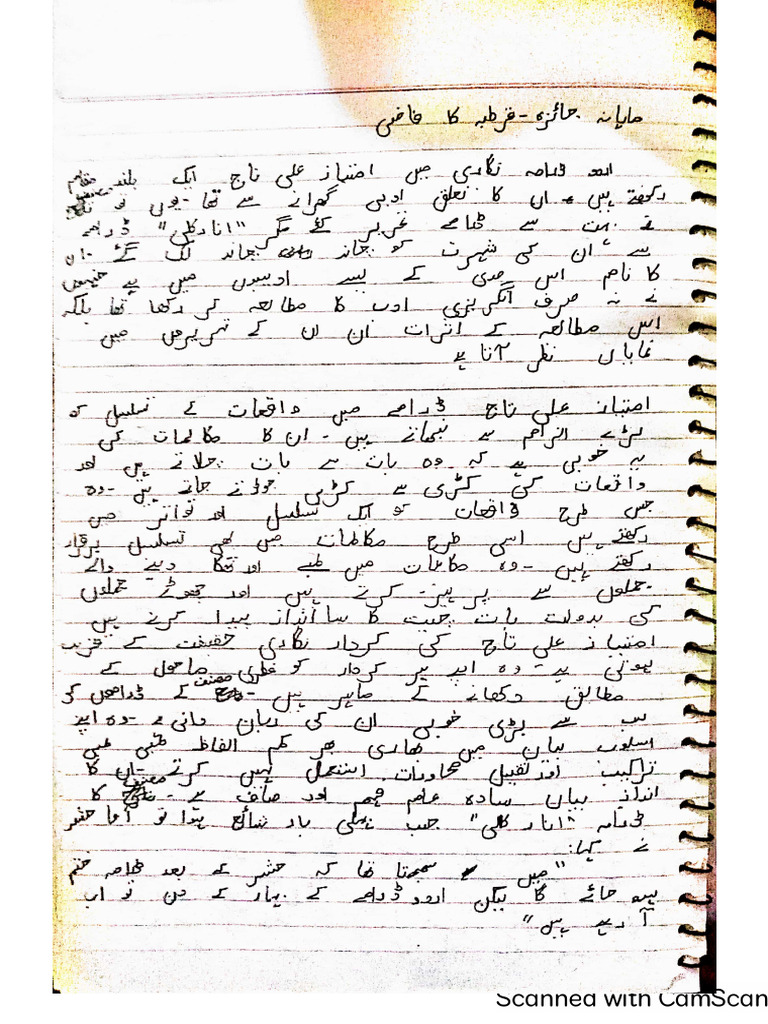 ماہانہ جائزہ - قرطبہ کا قاضی
اردو ڈرامہ نگاری میں امتیاز علی تاج ایک بلند مقام
رکھتے ہیں۔ ان کا تعلق ادبی گھرانے سے تھا۔ یوں تو
نے بہت سے ڈرامے تحریر کئے مگر "انارکلی" ڈرامے
سے ان کی شہرت کو چاند چاند لگ گئے۔ ان
کا نام اس صدی کے ایسے ادیبوں میں ہے جنہوں
نے نہ صرف انگریزی ادب کا مطالعہ کر رکھا تھا بلکہ
اس مطالعہ کے اثرات ان کے تحریروں میں
نمایاں نظر آتا ہے
امتیاز علی تاج ڈرامے میں واقعات کے تسلسل کو
بڑے التزام سے نبھاتے ہیں۔ ان کا مکالمات کی
یہ خوبی ہے کہ وہ بات سے بات چلاتے ہیں اور
واقعات کی کڑی سے کڑی جوڑتے جاتے ہیں۔ وہ
جس طرح واقعات کو ایک تسلسل اور تواتر میں
رکھتے ہیں اسی طرح مکالمات میں بھی تسلسل برقرار
رکھتے ہیں۔ وہ مکالمات میں لمبے اور تھکا دینے والے
جملوں سے پرہیز کرتے ہیں اور چھوٹے جملوں
کی بدولت بات چیت کا سا انداز پیدا کرتے ہیں
امتیاز علی تاج کی کردار نگاری حقیقت کے قریب
ہوتی ہے۔ وہ اپنے ہر کردار کو فطری ماحول کے
مطابق دکھانے کے ماہر ہیں۔ مصنف کے ڈراموں کو
سب سے بڑی خوبی ان کی زبان دانی ہے۔ وہ اپنے
اسلوب بیان میں بھاری بھر کم الفاظ لمبی لمبی
تراکیب اور ثقیل محاورات استعمال نہیں کرتے۔ ان کا
انداز بیان سادہ عام فہم اور صاف ہے۔ مصنف کا
ڈرامہ "انارکلی" جب پہلی بار شائع ہوا تو آغا حشر
نے کہا:
"میں سمجھتا تھا کہ حشر کے بعد ڈرامہ ختم
ہو جائے گا لیکن اردو ڈرامے کے بہار کے دن تو اب
آ رہے ہیں"
Scanned with CamScan